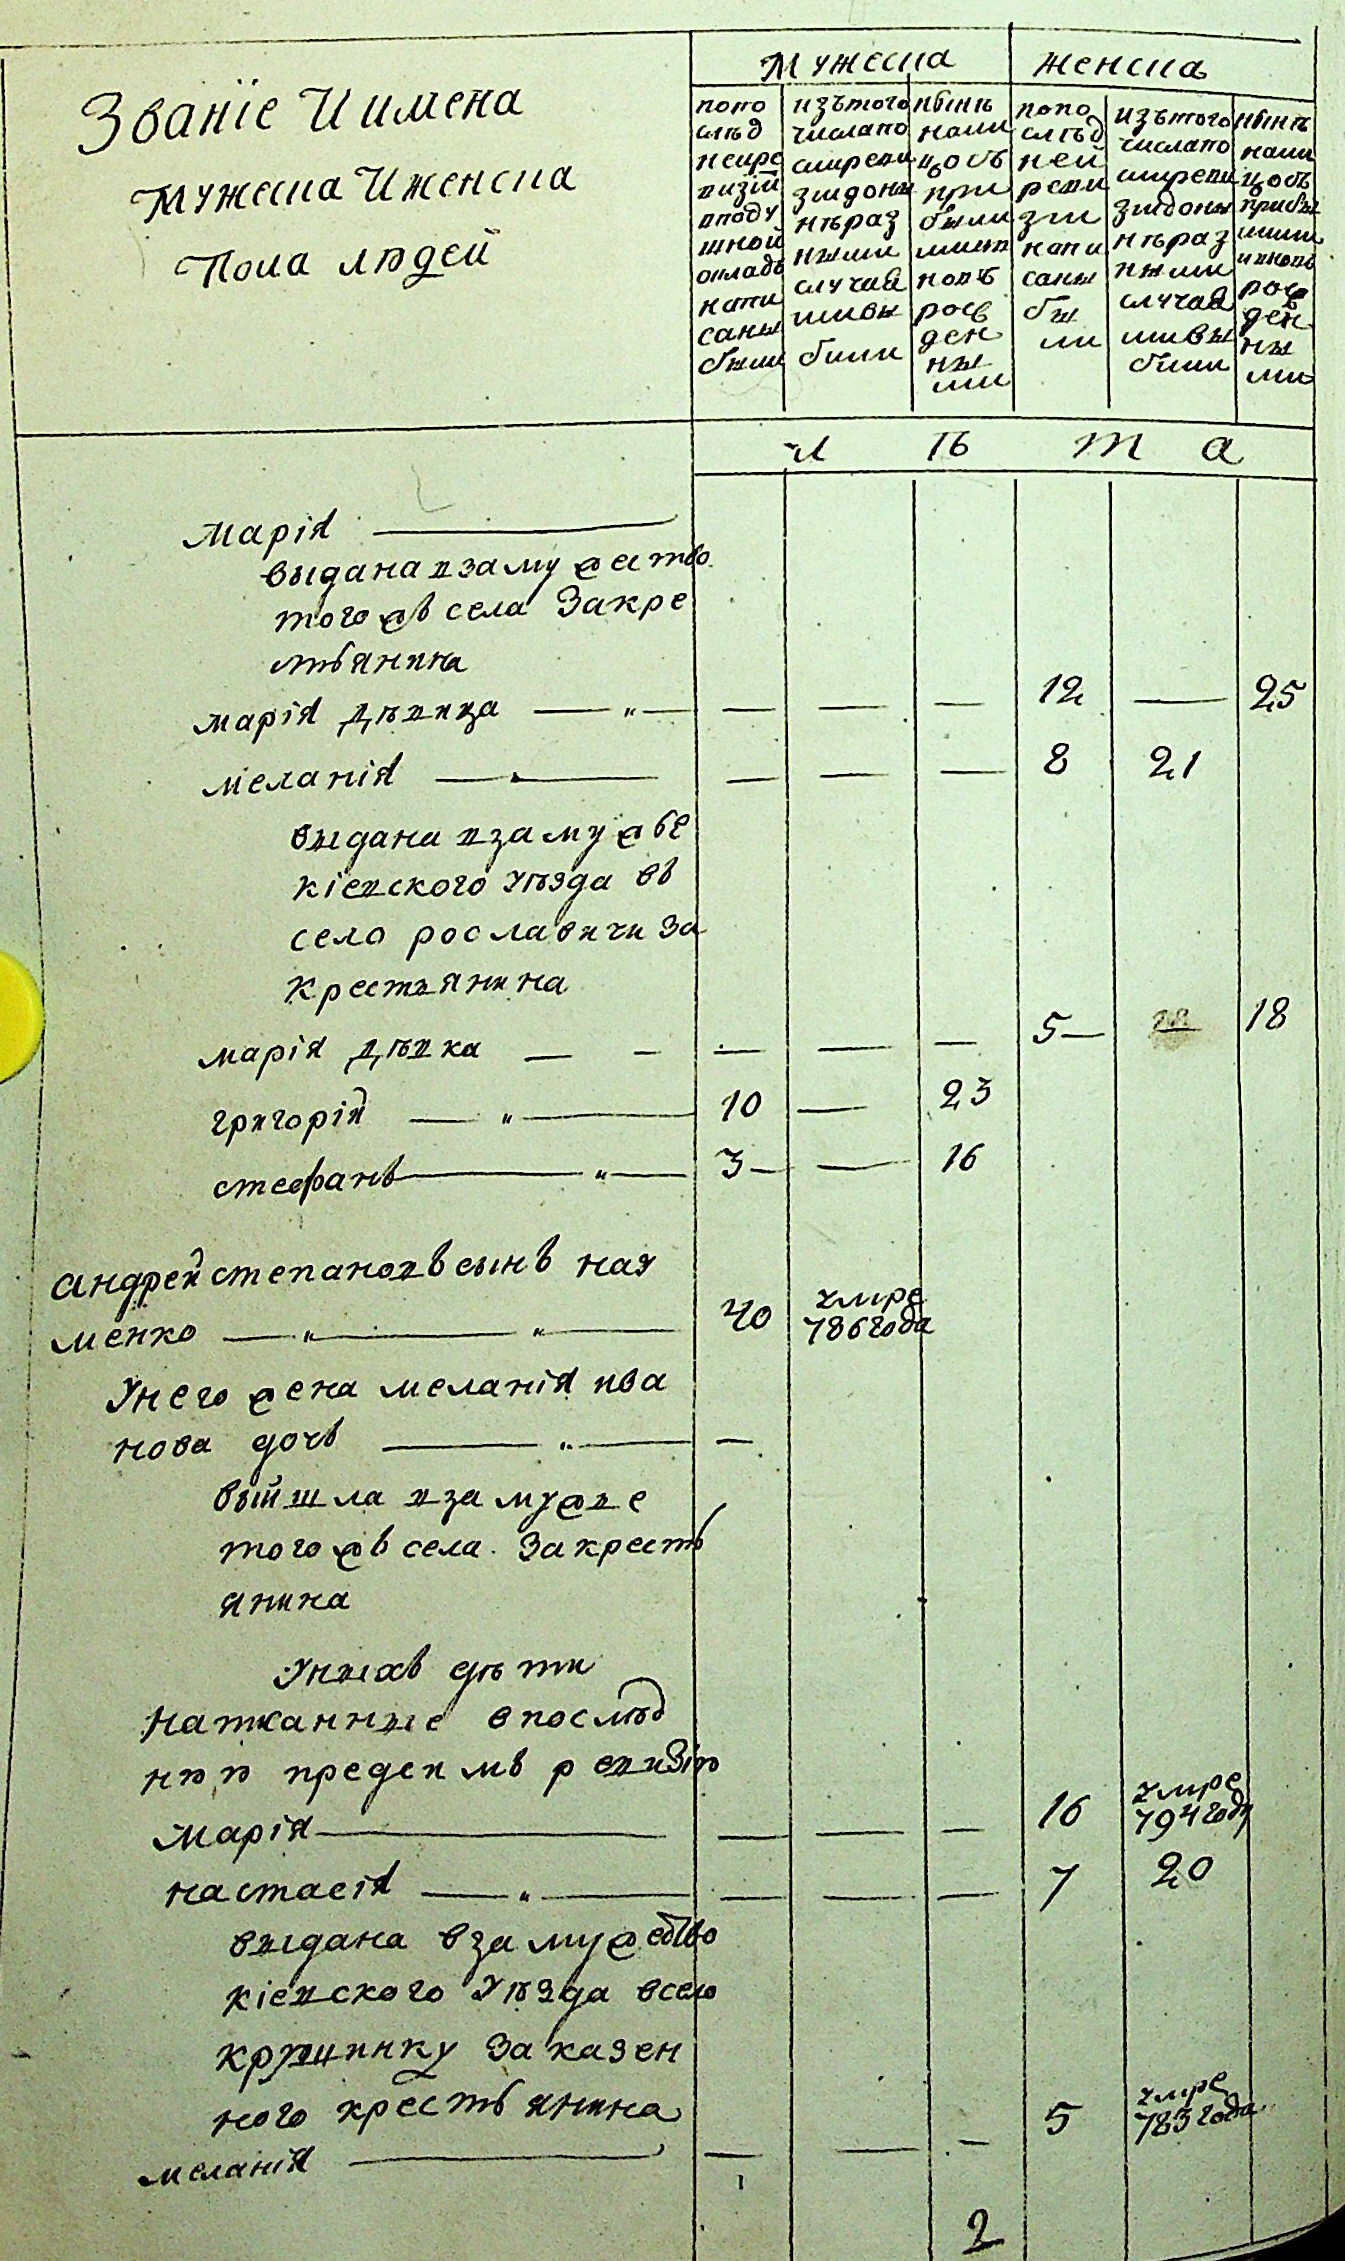 Званіе И имена
Мужеска И женска
Пола людей
Мужеска
женска
попо слѣд ней ре визіи вподу шной окладъ напи саны были
изътого числапо смреви зіидоны нѣраз ными случая мивы были
нынѣ нали цо съ при были мии вновь рож ден ны ми
попо слѣд ней реви зіи напи саны бы ли
изътого числапо смреви зіидоны нѣраз ными случая мивы были
нынѣ нали цо съ прибы лими ивновь рож ден ны ми
л ѣ т а
марія
выдана взамужество
тогожъ села Закре
стьянина
марія дѣвица — „ — — — — 12 — 25
меланія — — — — 8 21
выдана взамужье
кіевского уѣзда въ
село рославичи за
крестьянина
марія дѣвка — — — — — 5 — 18
григорій — „ — 10 — 23
стефанъ — „ — 3 — — 16
андрей степановъ сынъ ная
менко — „ — „ — 40 умре 786 года
Унего жена меланія ива
нова дочь — „ — —
выйшла взамужве
тогожъ села закресть
янина
Унихъ дѣти
написанные впослѣд
нюю предсимъ ревизію
Марія — — — — 16 умре 794 году
настасія — „ — — — — 7 20
выдана взамужество
кіевского уѣзда всело
крущинку за казен
ного крестьянина
меланія — — — — 5 умре 783 года
2